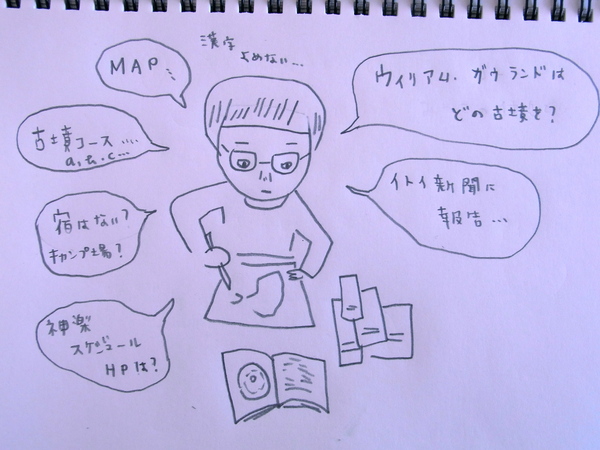 漢字
よめない...
MAP...
ウィリアム・ガウランドは
どの古墳を？
古墳コース....
a,b,c...
イトイ新聞に
報告...
宿はない？
キャンプ場？
神楽
スケジュール
HPは？